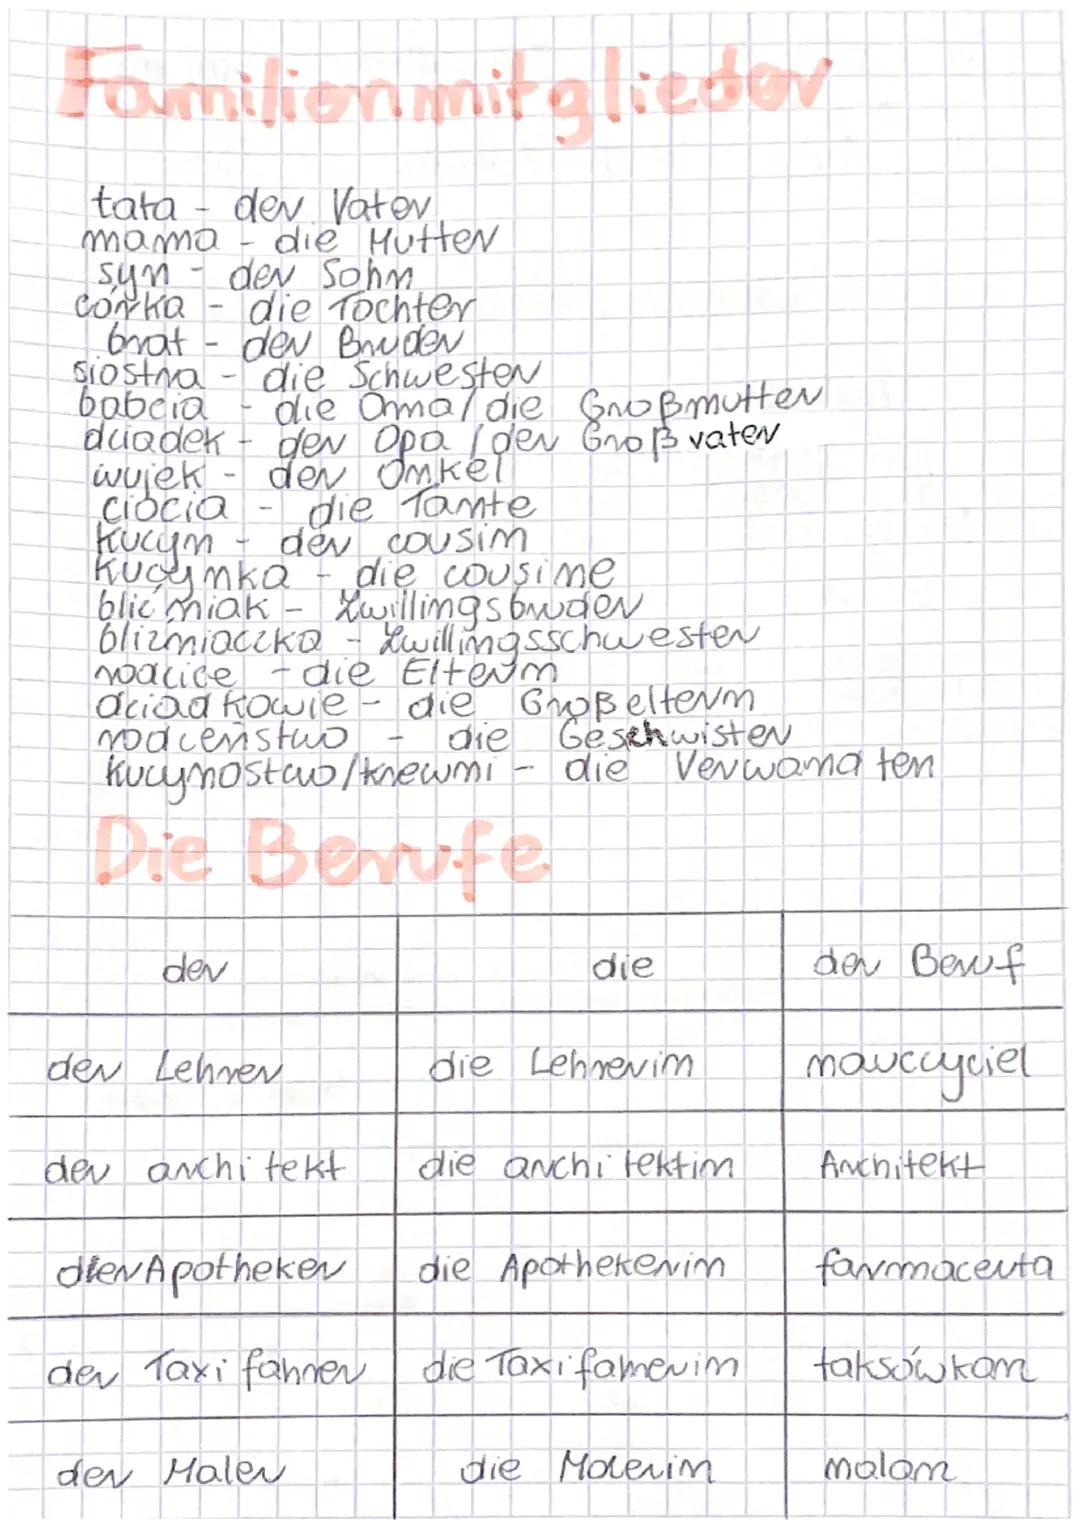 Familienmitglieder
tata - der Vater
mama - die Mutter
syn - der Sohn
córka - die Tochter
brat - der Bruder
siostra - die Schwester
babcia - die Oma/die Großmutter
dziadek - der Opa/der Großvater
wujek - der Onkel
ciocia - die Tante
kuzyn - der cousin
kuzynka - die cousine
bliźniak - Zwillingsbruder
bliźniaczka - Zwillingsschwester
rodzice - die Eltern
dziadkowie - die Großeltern
rodzeństwo - die Geschwister
kuzynostwo/krewni - die Verwandten
Die Berufe
der die der Beruf
der Lehrer die Lehrerin nauczyciel
der architekt die architektin Architekt
der Apotheker die Apothekerin farmaceuta
der Taxifahrer die Taxifahrerin taksówkarz
der Maler die Malerin malarz